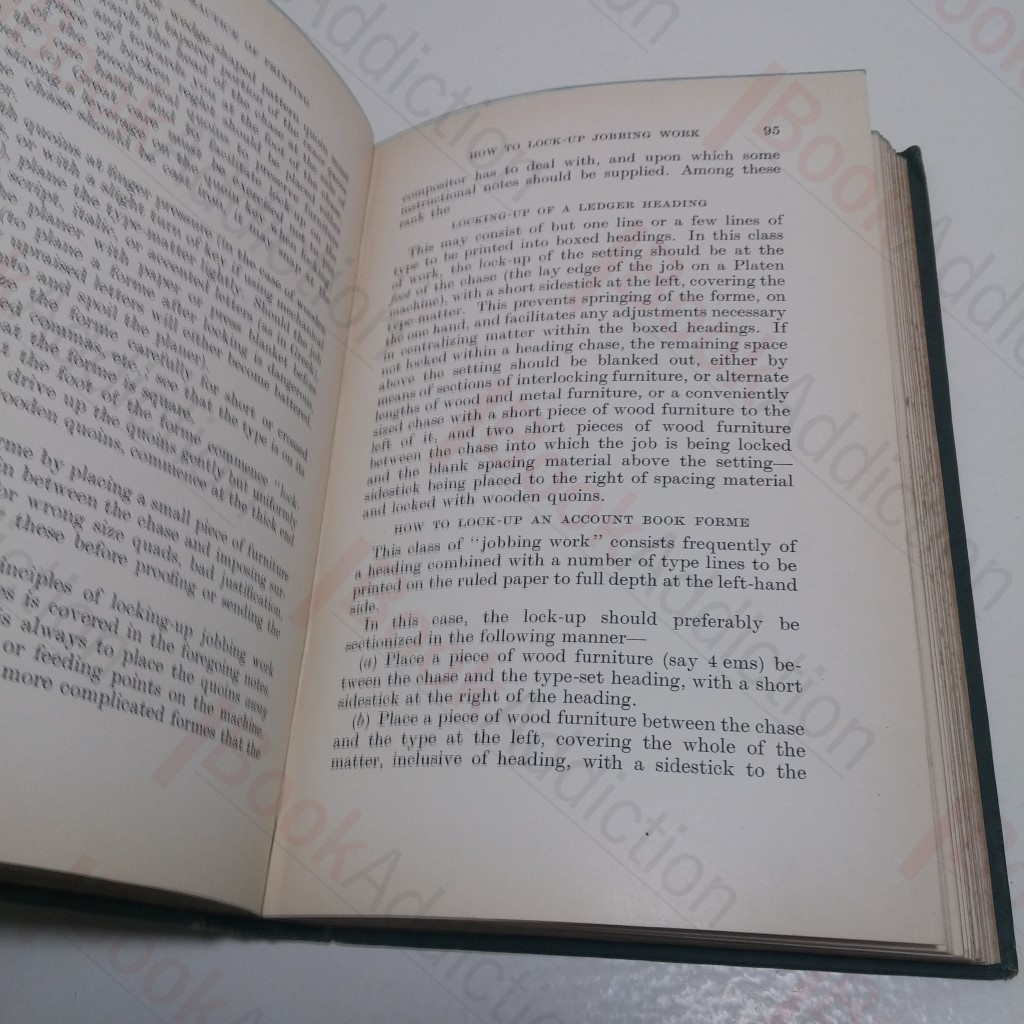 PRACTICE OF PRINTING
with quoins at finger pressure (in the case of mechanical
or with a slight pressure if using
plane the type-matter lightly. Should the job
script, italic, or accented letters (as in
planer with paper, or press blanket before
(to plane a forme after locking is dangerous
upraised letters will either become battered
into and spoil the planer).
the forme carefully for short or crossed
commas, etc.; see that the type is on its
that the forme is square.
at the foot of the forme commence "lock-
drive up the quoins gently but uniformly
wooden quoins, commence at the thick end
forme by placing a small piece of furniture
in between the chase and imposing sur-
or wrong size quads, bad justification,
these before proofing or sending the
principles of locking-up jobbing work
is covered in the foregoing notes.
is always to place the quoins away
or feeding points on the machine.
more complicated formes that the
HOW TO LOCK-UP JOBBING WORK 95
compositor has to deal with, and upon which some
instructional notes should be supplied. Among these
rank the
LOCKING-UP OF A LEDGER HEADING
This may consist of but one line or a few lines of
type to be printed into boxed headings. In this class
of work, the lock-up of the setting should be at the
foot of the chase (the lay edge of the job on a Platen
machine), with a short sidestick at the left, covering the
type-matter. This prevents springing of the forme, on
the one hand, and facilitates any adjustments necessary
in centralizing matter within the boxed headings. If
not locked within a heading chase, the remaining space
above the setting should be blanked out, either by
means of sections of interlocking furniture, or alternate
lengths of wood and metal furniture, or a conveniently
sized chase with a short piece of wood furniture to the
left of it, and two short pieces of wood furniture
between the chase into which the job is being locked
and the blank spacing material above the setting—
sidestick being placed to the right of spacing material
and locked with wooden quoins.
HOW TO LOCK-UP AN ACCOUNT BOOK FORME
This class of "jobbing work" consists frequently of
a heading combined with a number of type lines to be
printed on the ruled paper to full depth at the left-hand
side.
In this case, the lock-up should preferably be
sectionized in the following manner—
(a) Place a piece of wood furniture (say 4 ems) be-
tween the chase and the type-set heading, with a short
sidestick at the right of the heading.
(b) Place a piece of wood furniture between the chase
and the type at the left, covering the whole of the
matter, inclusive of heading, with a sidestick to the
BookAddiction